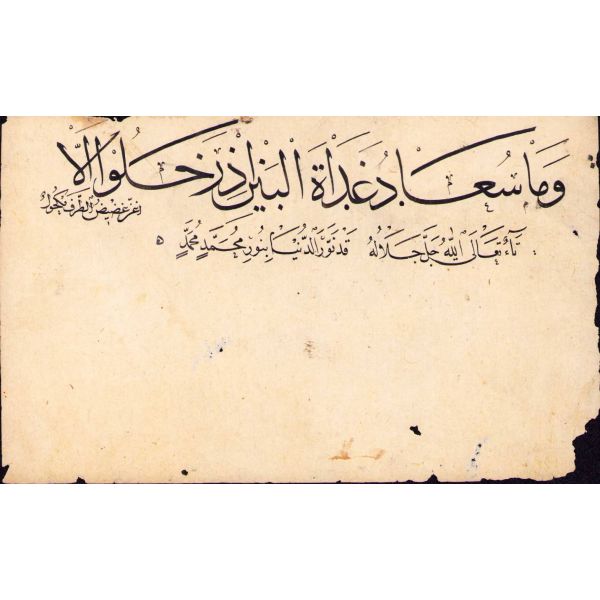 وَمَا سُعَادُ غَدَاةَ الْبَيْنِ إِذْ رَحَلُوا إِلَّا
أَغَنُّ غَضِيضُ الطَّرْفِ مَكْحُولُ
تَعَالَى اللّٰهُ جَلَّ جَلَالُهُ قَدْ نَوَّرَ الدُّنْيَا بِنُورِ مُحَمَّدٍ مُحَمَّدٍ